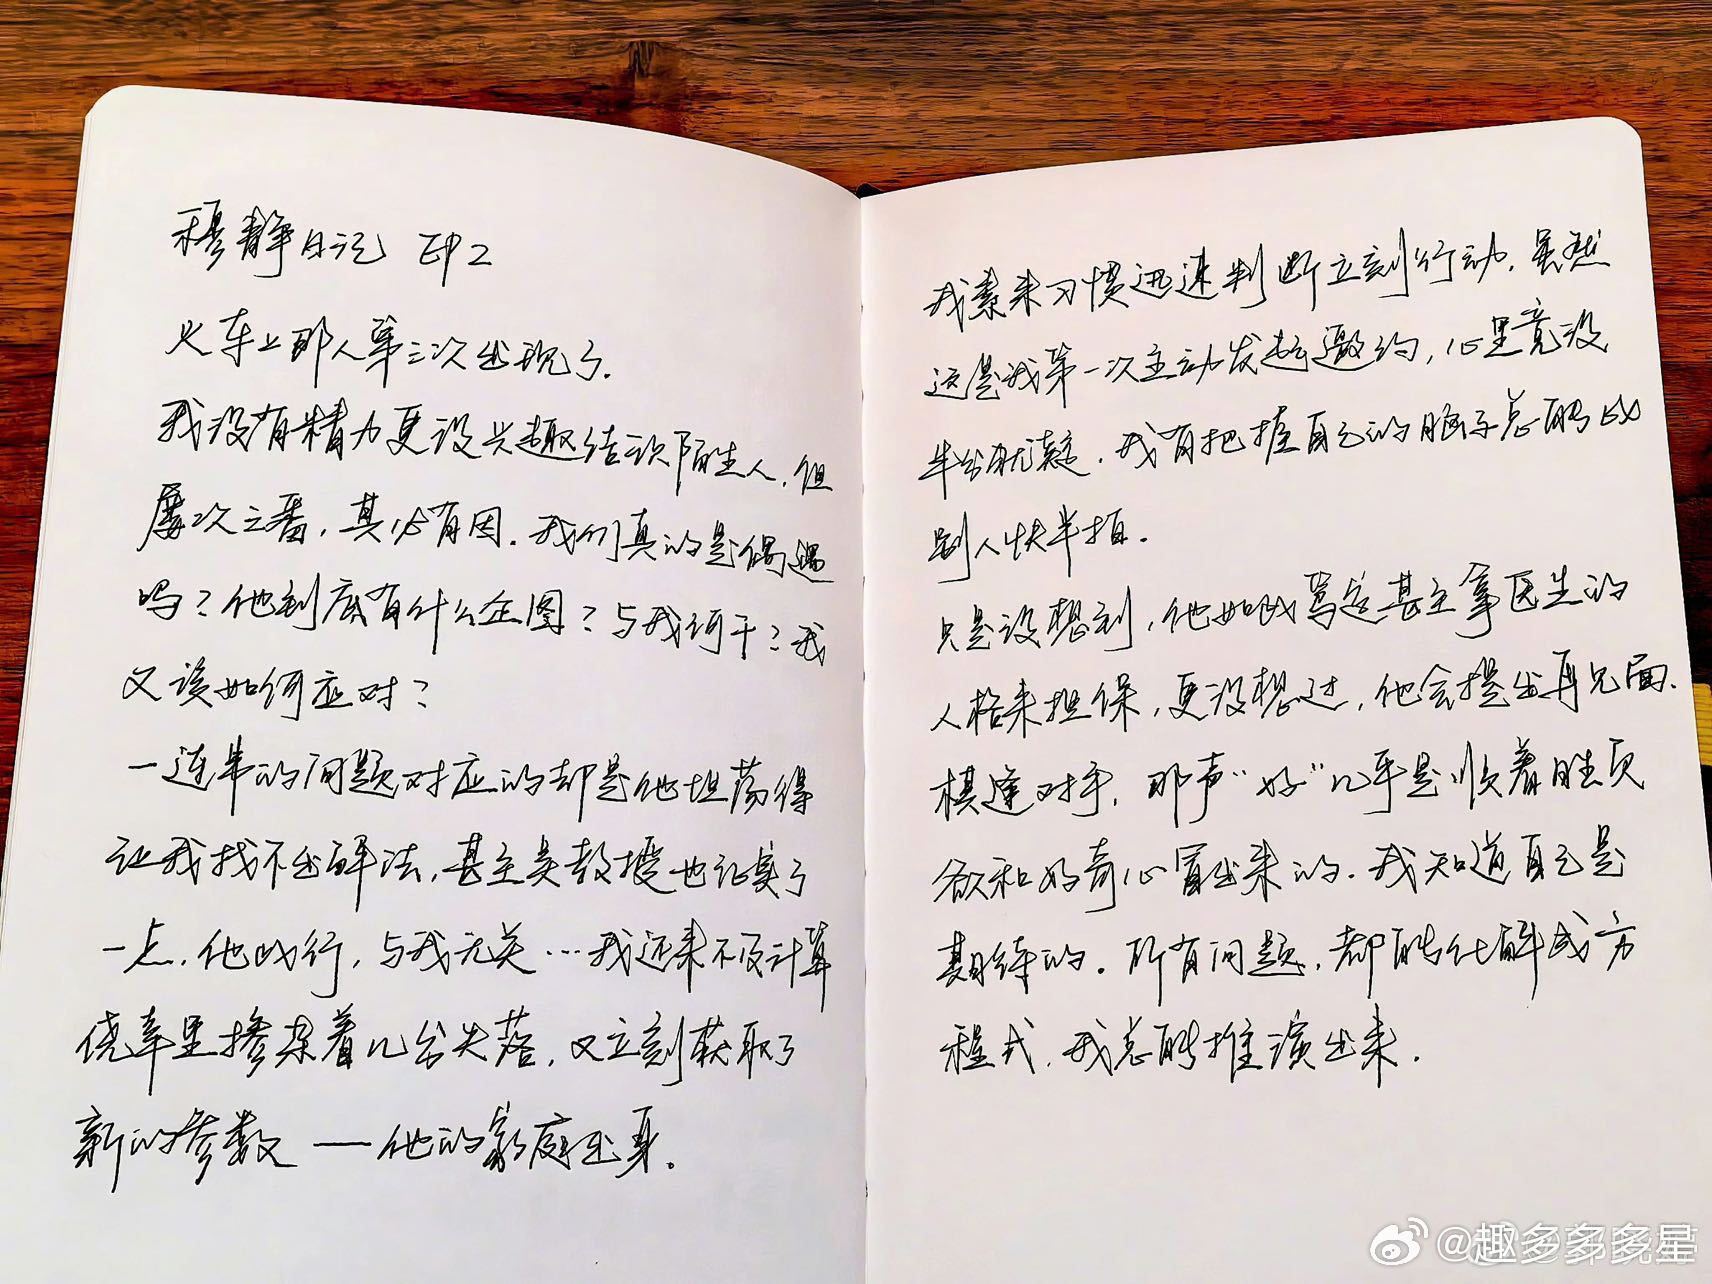 穆静日记 EP2
火车上那人第三次出现了.
我没有精力更没兴趣结识陌生人.但
屡次三番,其必有因.我们真的是偶遇
吗?他到底有什么企图?与我何干?我
又该如何应对?
一连串的问题对应的却是他坦荡得
让我找不出解法,甚至吴教授也证实了
一点.他此行,与我无关…我还来不及计算
侥幸里掺杂着几分失落,又立刻获取了
新的参数——他的家庭出身.
我素来习惯迅速判断立刻行动.虽然
这是我第一次主动发起邀约,心里竟没
半分犹疑.我有把握自己的脑子总能比
别人快半拍.
只是没想到,他如此笃定甚至拿医生的
人格来担保,更没想过,他会提出再见面.
棋逢对手,那声"好"几乎是顺着胜负
欲和好奇心冒出来的.我知道自己是
期待的.所有问题,都能化解成方
程式,我总能推演出来.
@趣多多多星